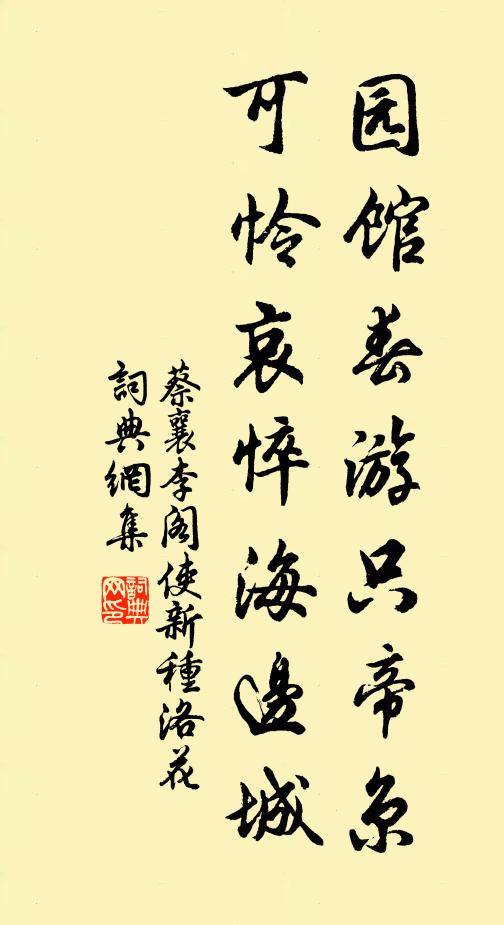 园馆春游只帝京
可怜哀悴海邊城
蔡襄李阁使新種洛花
詞典網集
詞典網印